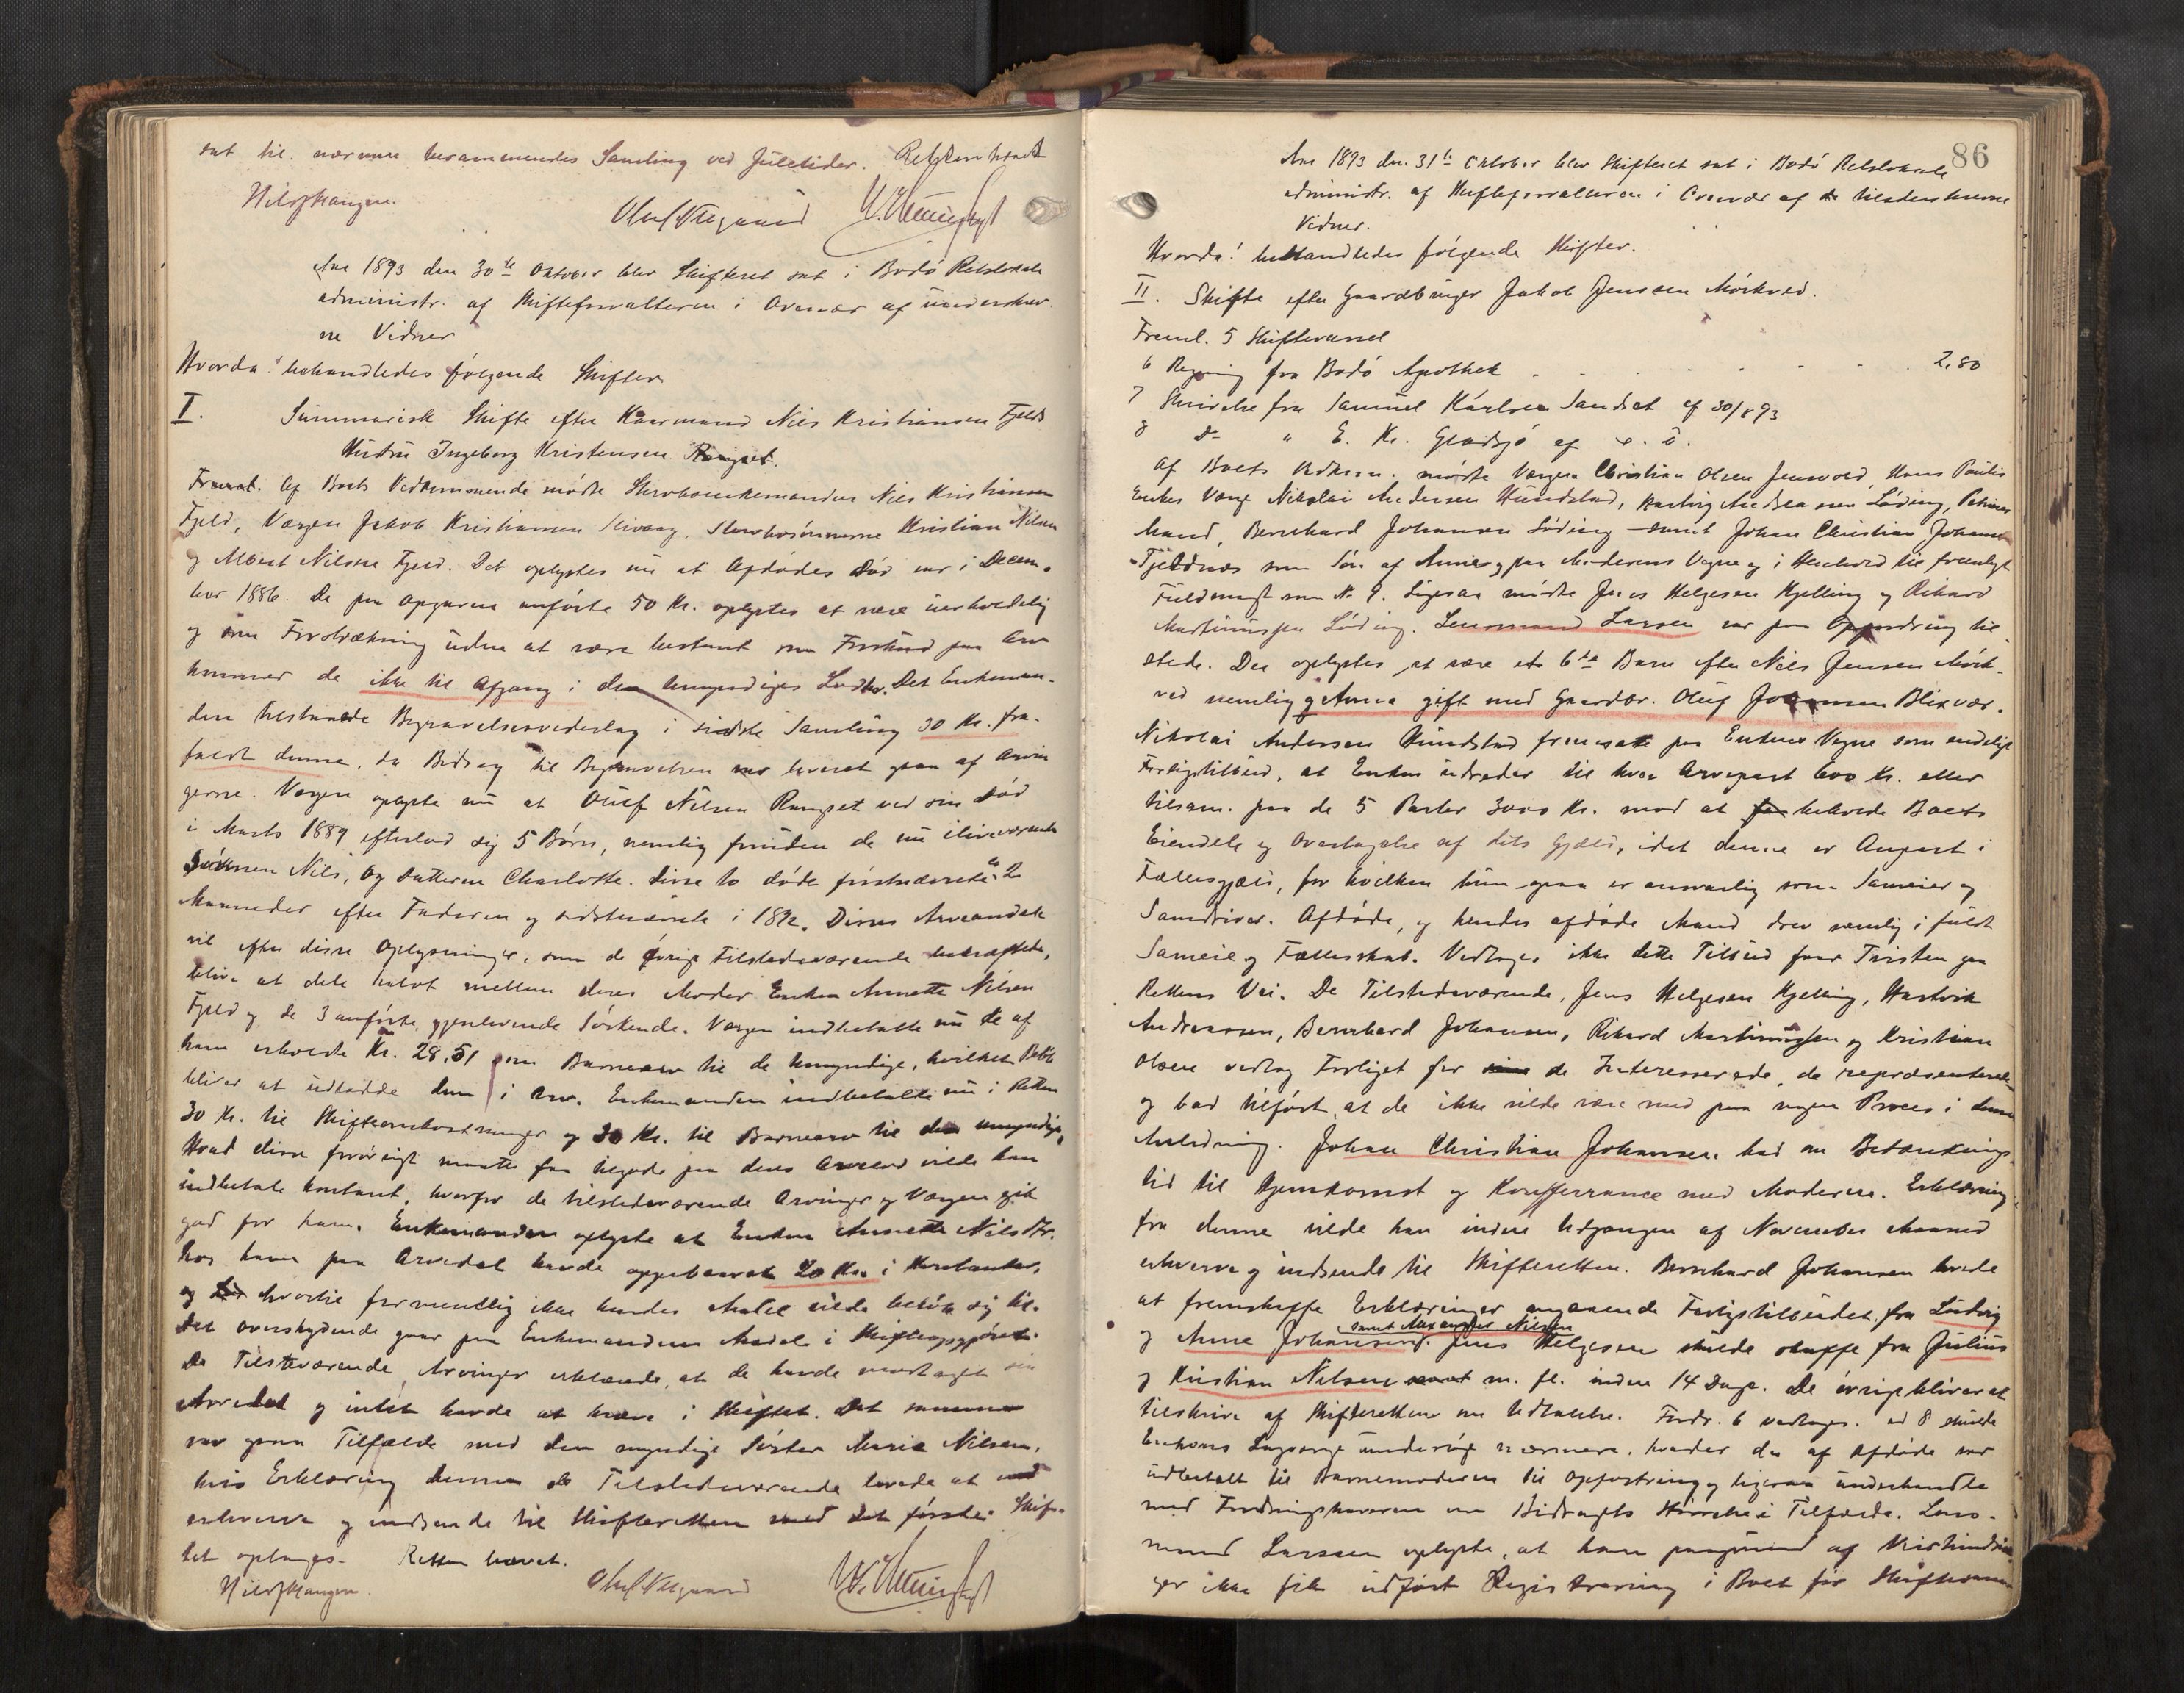 sat til nærmere berammendes Samling ved Juletider. Retten hævet
Aar 1893 den 30te Oktober blev Skifteret sat i Bodö Retslokale
administr. af Skifteforvalteren i Overvær af underskrev-
ne Vidner
Hvorda: behandledes fölgende Skifter
I. Summarisk Skifte efter Kaarmand Nils Kristiansen Fjelds
Hustru Ingeborg Kristensen
Af Boets Vedkommende mödte Stervboenkemanden Nils Kristiansen
Fjeld, Vægen Jakob Kristiansen Stervbosönnerne Kristian Nilsen
og Albert Nilsen Fjeld. Det oplystes nu at Afdödes Död var i Decem-
ber 1886. De paa Opgaven anförte 50 Kr. oplystes at være
og som Forstrækning uden at være bestemt som Forskud paa Arv
kommer de ikke til Afgang i den Umyndiges Lodder. Det Enkeman-
den tilstaaede Begravelsesvederlag i sidste Samling 30 Kr. fra-
faldt denne, da Bidrag til Begravelsen var leveret ogsaa af Arvin
gerne. Vægen oplyste nu at Oluf Nilsen Rangset ved sin Död
i Marts 1889 efterlod sig 5 Börn, nemlig foruden de nu ilive værende
Sönnen Nils, og Datteren Charlotte. Disse to döde förstnævnte ca 2
Maaneder efter Faderen og sidstnævnte i 1892. Disses Arveandele
vil efter disse Oplysninger, som de övrige Tilstedeværende bekræftede,
blive at dele halvt mellem deres Moder Enken Annette Nilsen
Fjeld og de 3 anförte gjenlevende Söskende. Vægen indbetalte nu de af
ham erholdte Kr. 28,51 som Barnearv til de Umyndige, hvilket Belöb
bliver at udlodde dem i Arv. Enkemanden indbetalte nu i Retten
30 Kr. til Skifteomkostninger og 30 Kr. til Barnearv til de umyndige,
Hvad disse forövrigt maatte faa tilgode paa deres Arvelod vilde han
indbetale kontant, hvorfor de tilstedeværende Arvinger og Vægen gik
god for ham. Enkemanden oplyste at Enken Annette Nilsdtr.
hos ham paa Arvedel havde oppebaaret 20 Kr. i Kontanter,
og hvortil formentlig ikke hendes Andel vilde belöbe sig til.
Det overskydende gaar paa Enkemandens Andel i Skifteopgjöret.
De Tilstedeværende Arvinger erklærede, at de havde modtaget sin
Arvedel og intet havde at kræve i Skiftet. Det samme
var ogsaa Tilfælde med den myndige Söster Maria Nilsen,
hvis Erklæring denne de Tilstedeværende lovede at
erhverve og indsende til Skifteretten med det förste. Skif-
tet optages. Retten hævet.
86
Aar 1893 den 31te Oktober blev Skifteret sat i Bodö Retslokale
administr. af Skifteforvalteren i Overvær af de tilstedeværende
Vidner.
Hvorda: behandledes fölgende Skifter.
II. Skifte efter Gaardbruger Jakob Jenssen Mörkved.
Freml. 5 Skiftevarsel
6 Regning fra Bodö Apothek . . . . . . 2,80
7 Skrivelse fra Samuel Karlsen Sandset af 30/8 93
8 do " E. Kr. Gladsjö af
Af Boets Vedkom. mödte Vægen Christian Olsen Jensvold, Hans Paulis
Enkes Værge Nikolai Andersen Hundstad, Hartvig Andreassen Löding, Petrines
Mand, Bernhard Johansen Löding samt Johan Christian Johansen
Tjeldnæs som Sön af Anne og paa Moderens Vegne og i Henhold til fremlagt
Fuldmagt som N. 9. Ligesaa mödte Jens Helgesen Kjelling og Rikard
Martinussen Löding. Lensmand Larsen var paa Opfordring til
stede. Der oplystes at være et 6te Barn efter Nils Jensen Mörk-
ved nemlig Anna gift med Gaardbr. Oluf Johansen Blixvær.
Nikolai Andersen Hundstad fremsatte paa Enkens Vegne som endeligt
Forligstilbud, at Enken udreder til hver Arvepart 600 Kr. eller
tilsam. paa de 5 Parter 3000 Kr. mod at beholde Boets
Eiendele og Overtagelse af dets Gjæld, idet denne er Anpart i
Fællesgjæld, for hvilken hun ogsaa er ansvarlig som Sameier og
Samdriver. Afdöde, og hendes afdöde Mand drev nemlig i fuldt
Sameie og Fællesskab. Vedtages ikke dette Tilbud faar Tvisten gaa
Rettens Vei. De Tilstedeværende, Jens Helgesen Kjelling, Hartvik
Andreassen, Bernhard Johansen, Rikard Martinussen og Kristian
Olsen vedtog Forliget for de Interesserede, de repræsenterede
og bad tilfört, at de ikke vilde være med paa nogen Proces i denne
Anledning. Johan Christian Johansen bad om Betænknings-
tid til Hjemkomst og Konfferrance med Moderen. Erklæring
fra denne vilde han inden Udgangen af November Maaned
erhverve og indsende til Skifteretten. Bernhard Johansen lovede
at fremskaffe Erklæringer angaaende Forligstilbudet fra Ludvig
samt Alexander Nilsen
og Anne Johansen. Jens Helgesen skulde skaffe fra Julius
og Kristian Nilsen m. fl. inden 14 Dage. De övrige bliver at
tilskrive af Skifteretten om Udtalelse. Fordr. 6 vedtages. ad 8 skulde
Enkens Lagværge undersöge nærmere, hvad der af Afdöde var
udbetalt til Barnemoderen til Opfostring og ligesaa underhandle
med Fordringshaveren om Bidragets Störrelse i Tilfælde. Lens-
mand Larssen oplyste, at han paagrund af
ger ikke fik udfört Registrering i Boet för